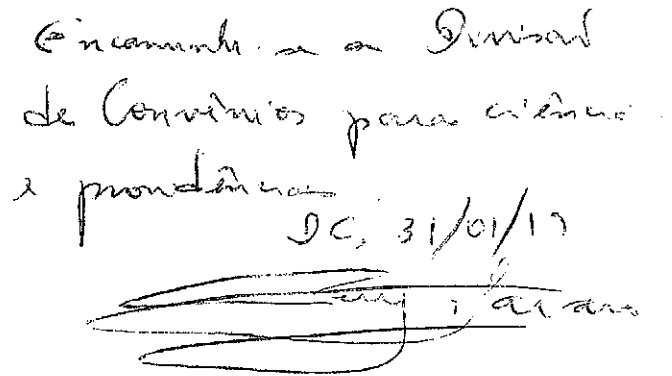 Encaminhe-se a Divisão
de Convênios para ciência
e providências
DC, 31/01/17